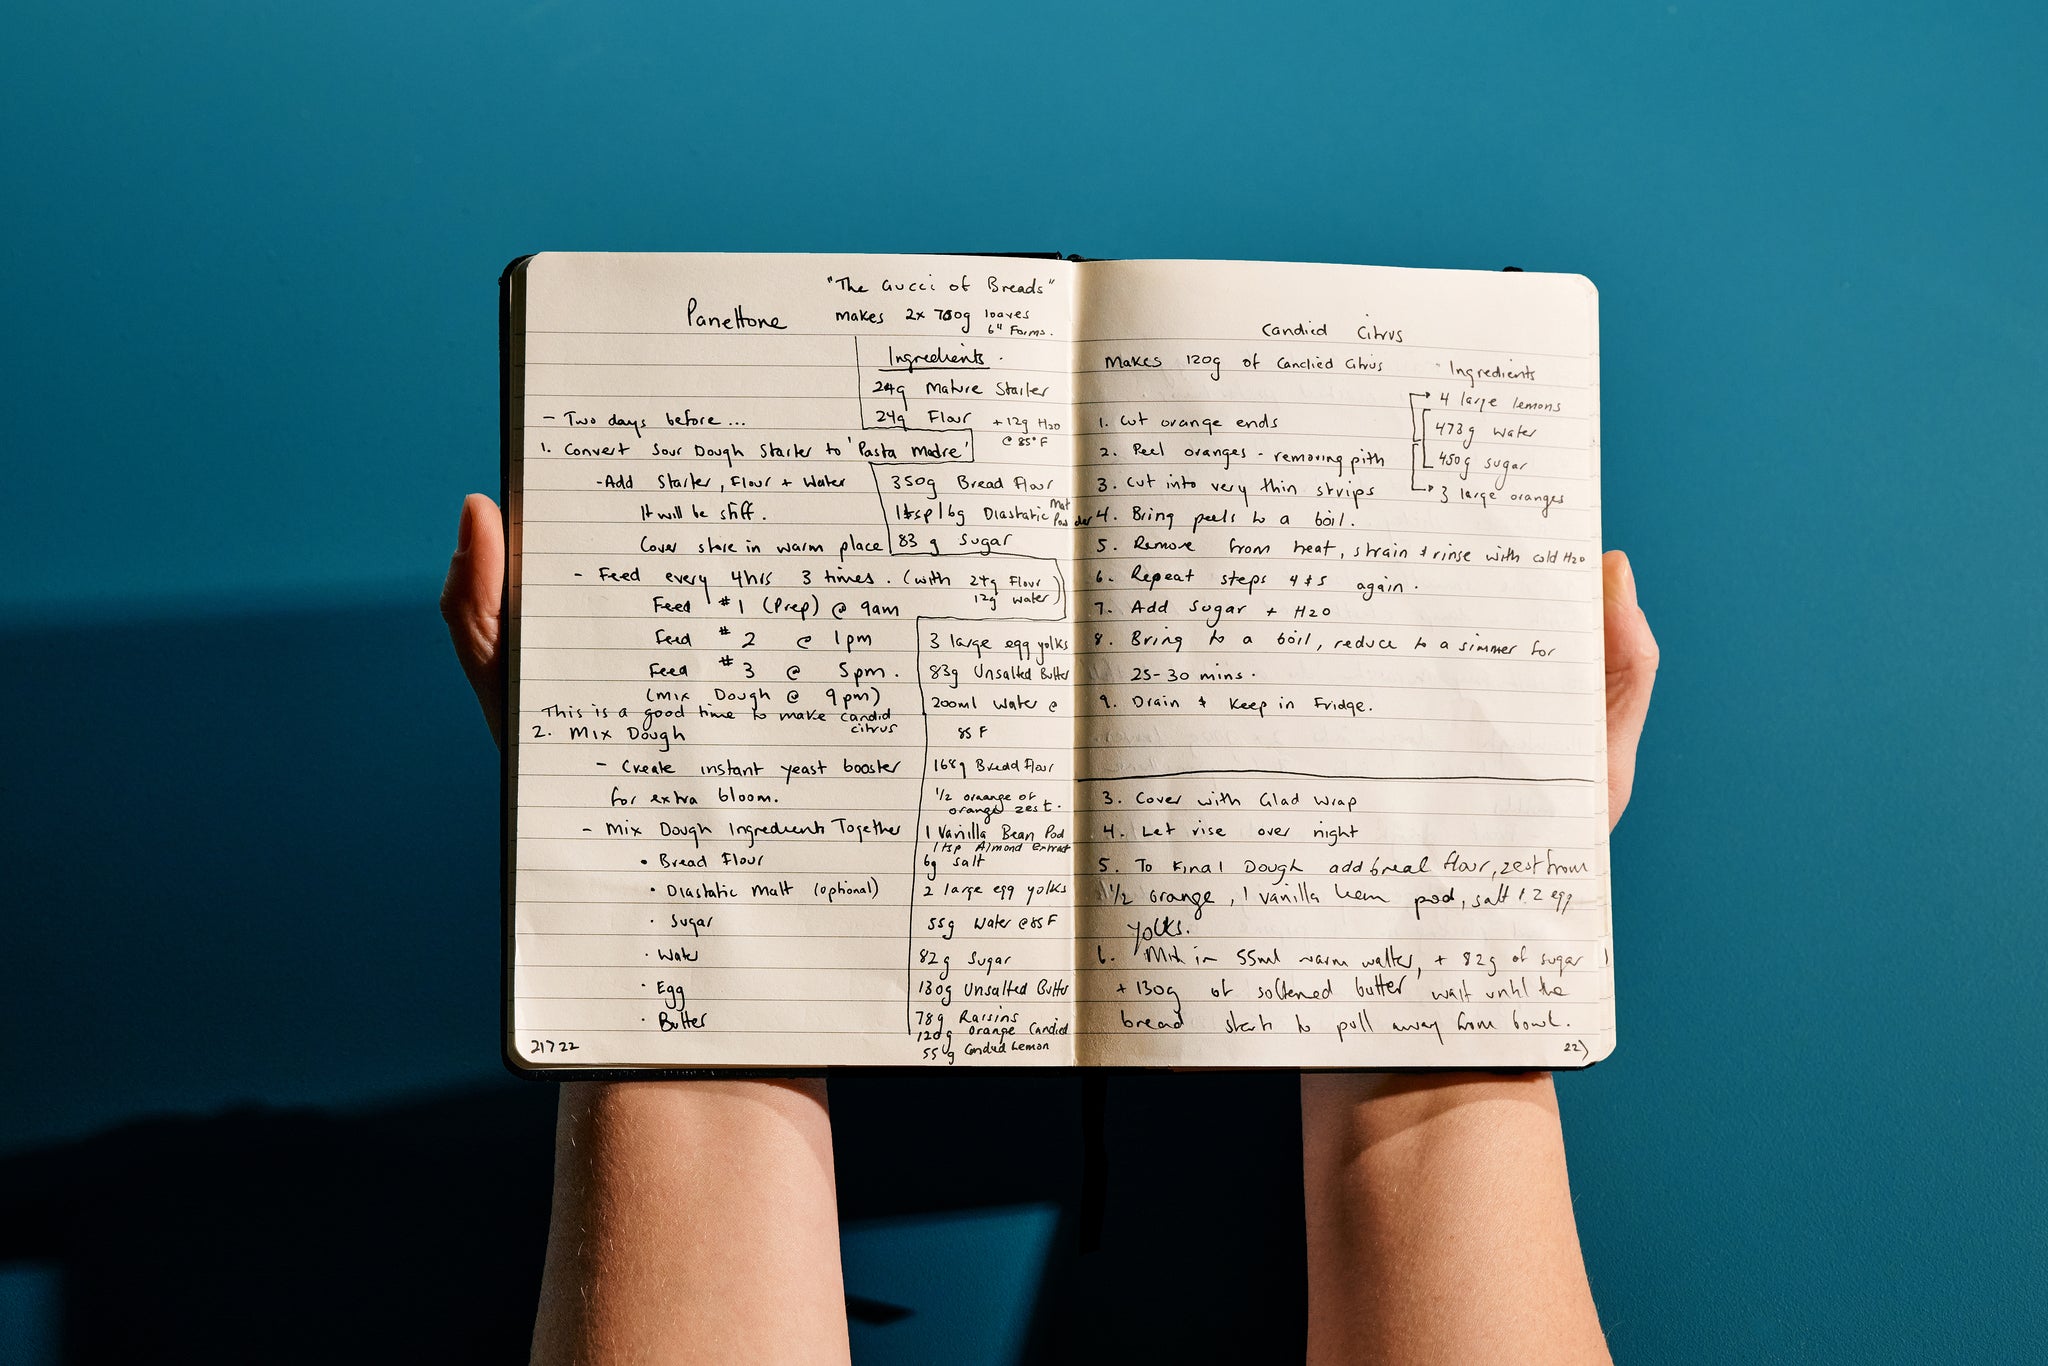 "The Gucci of Breads"
Panettone
makes 2x 780g loaves
6" Forms.
Ingredients.
24g Mature Starter
24g Flour + 12g H2O
@ 85°F
- Two days before...
1. Convert Sour Dough Starter to 'Pasta Madre'
- Add Starter, Flour + Water
It will be stiff.
Cover store in warm place
350g Bread Flour
1tsp/6g Diastatic Malt Powder
83g Sugar
- Feed every 4hrs 3 times. (with 24g Flour
12g water)
Feed #1 (Prep) @ 9am
Feed #2 @ 1pm
Feed #3 @ 5pm.
(mix Dough @ 9pm)
This is a good time to make candid
citrus
3 large egg yolks
83g Unsalted Butter
200ml Water @
85 F
2. Mix Dough
- Create instant yeast booster
for extra bloom.
- Mix Dough Ingredients Together
• Bread Flour
• Diastatic Malt (optional)
• Sugar
• Water
• Egg
• Butter
168g Bread Flour
1/2 oraange of
orange zest.
1 Vanilla Bean Pod
1 tsp Almond extract
6g salt
2 large egg yolks
55g Water @85F
82g Sugar
130g Unsalted Butter
78g Raisins
120g orange Candied
55g Candied Lemon
21722
Candied Citrus
Makes 120g of Candied Citrus
Ingredients
4 large lemons
473g water
450g sugar
3 large oranges
1. Cut orange ends
2. Peel oranges - removing pith
3. Cut into very thin strips
4. Bring peels to a boil.
5. Remove from heat, strain & rinse with cold H2O
6. Repeat steps 4 & 5 again.
7. Add Sugar + H2O
8. Bring to a boil, reduce to a simmer for
25-30 mins.
9. Drain & Keep in Fridge.
3. Cover with Glad Wrap
4. Let rise over night
5. To Final Dough add bread flour, zest from
1/2 orange, 1 vanilla bean pod, salt & 2 egg
yolks.
6. Mix in 55ml warm water, + 82g of sugar
+ 130g of softened butter wait until the
bread starts to pull away from bowl.
22)